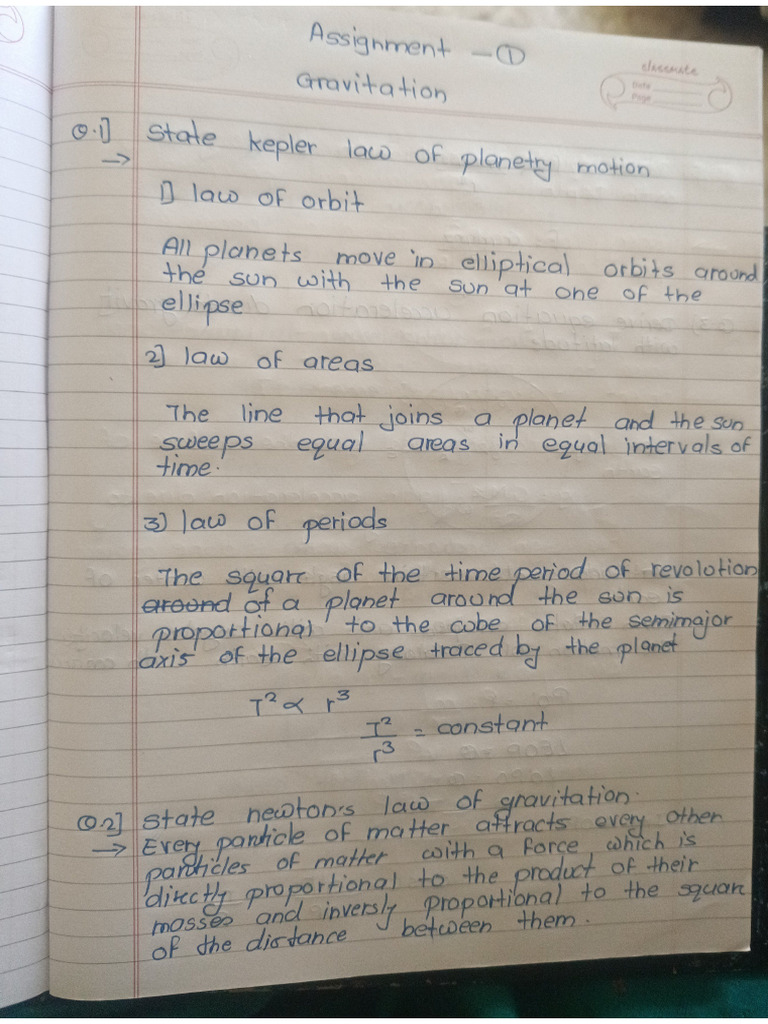 Assignment - ①
Gravitation
classmate
Date
Page
Q.1] State kepler law of planetry motion
→
1] law of orbit
All planets move in elliptical orbits around
the sun with the sun at one of the
ellipse
2] law of areas
The line that joins a planet and the sun
sweeps equal areas in equal intervals of
time.
3] law of periods
The square of the time period of revolotion
around of a planet around the sun is
proportional to the cobe of the semimajor
axis of the ellipse traced by the planet
T² ∝ r³
T²/r³ = constant
Q.2] State newton's law of gravitation.
→ Every particle of matter attracts every other
particles of matter with a force which is
directly proportional to the product of their
masses and inversly proportional to the square
of the distance between them.